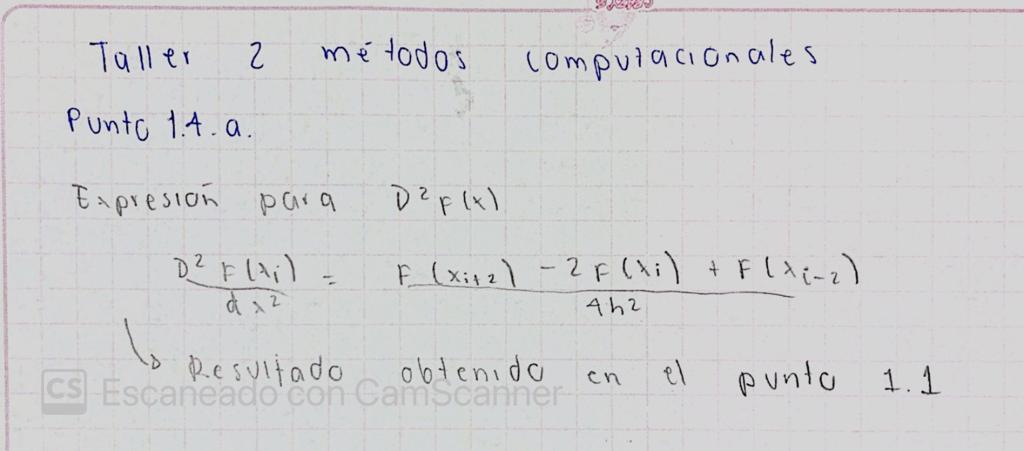 Taller 2 métodos computacionales
Punto 1.4.a.
Expresión para D²F(x)
D² F(xi) / dx² = F(xi+2) - 2F(xi) + F(xi-2) / 4h²
↳ Resultado obtenido en el punto 1.1
CS Escaneado con CamScanner